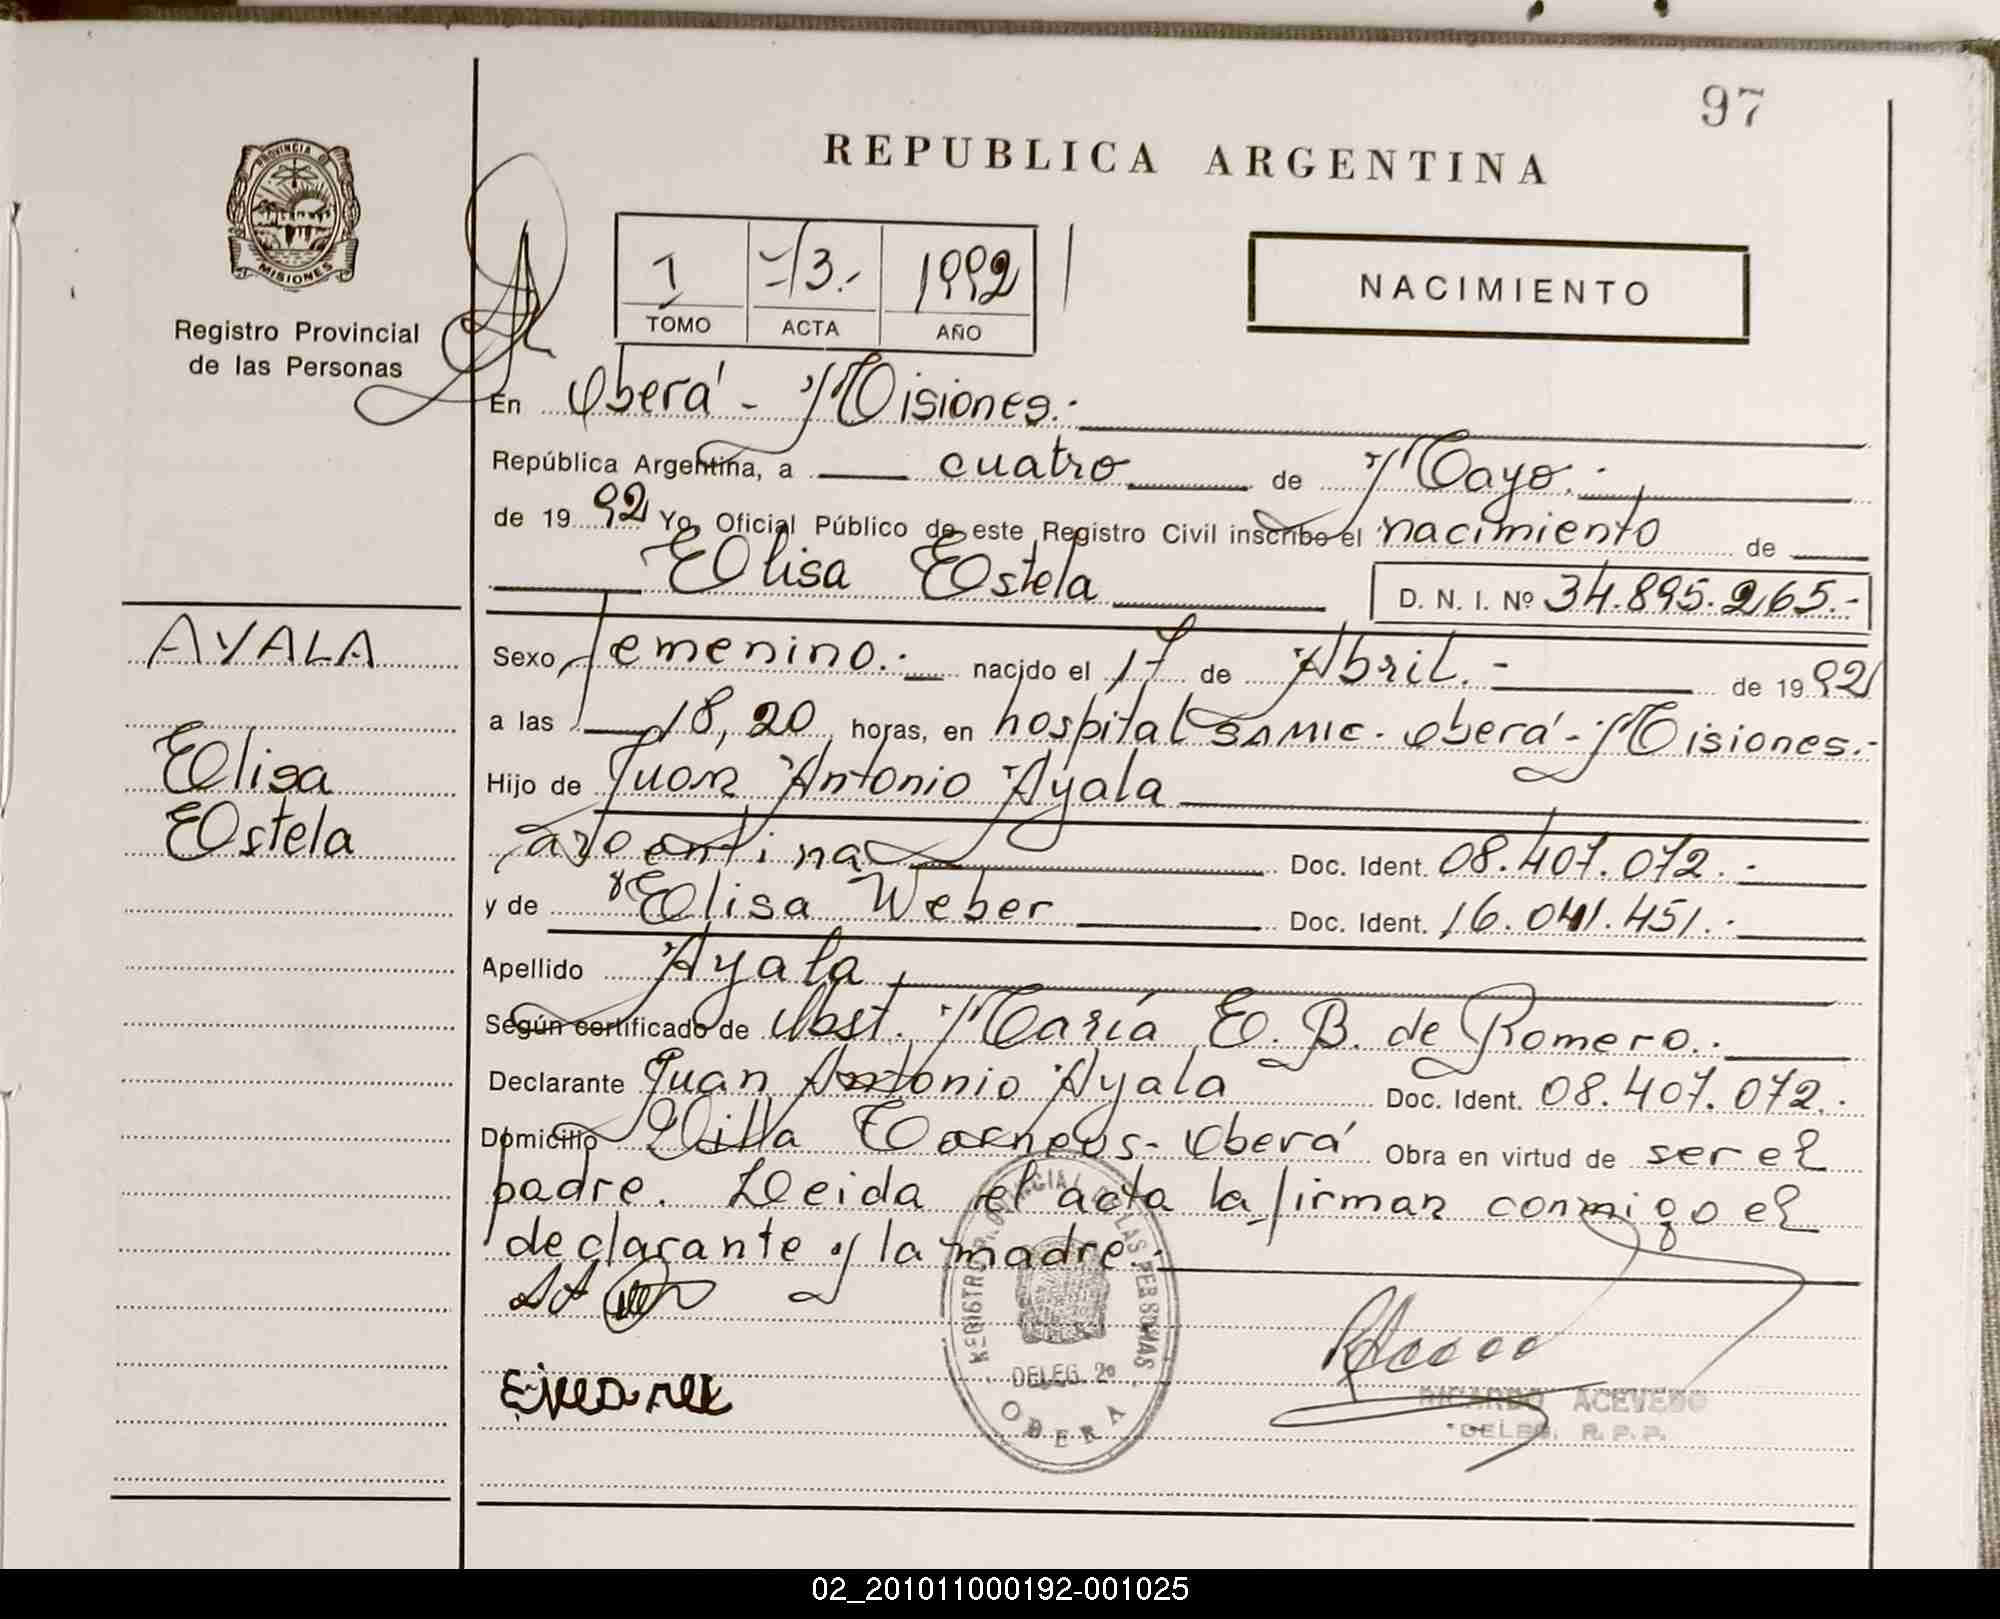 97
REPUBLICA ARGENTINA
PROVINCIA DE
MISIONES
Registro Provincial
de las Personas
I -/3.- 1992
TOMO ACTA AÑO
NACIMIENTO
En Oberá - Misiones.-
República Argentina, a cuatro de Mayo.-
de 1992 Yo, Oficial Público de este Registro Civil inscribo el nacimiento de
Elisa Estela D. N. I. Nº 34.895.265.-
AYALA
Elisa
Estela
Sexo femenino.- nacido el 17 de Abril.- de 1992
a las 18,20 horas, en hospital SAMIC. Oberá - Misiones.-
Hijo de Juan Antonio Ayala
argentina Doc. Ident. 08.407.072.-
y de Elisa Weber Doc. Ident. 16.041.451.-
Apellido Ayala
Según certificado de Obst. María E. B. de Romero.-
Declarante Juan Antonio Ayala Doc. Ident. 08.407.072.-
Domicilio Villa Oberá Obra en virtud de ser el
padre. Leida el acta la firman conmigo el
declarante y la madre.-
REGISTRO PROVINCIAL DE LAS PERSONAS
DELEG. 2º
OBERA
RICARDO ACEVEDO
DELEG. R.P.P.
02_201011000192-001025